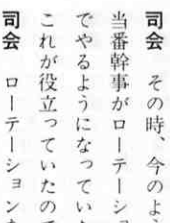 司会　その時、今のよ
当番幹事がローテーシ
でやるようになってい
これが役立っていたので
司会　ローテーション